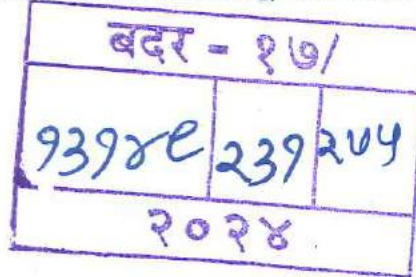 बदर - १७/
१३१४९ २३१ २७५
२०२४